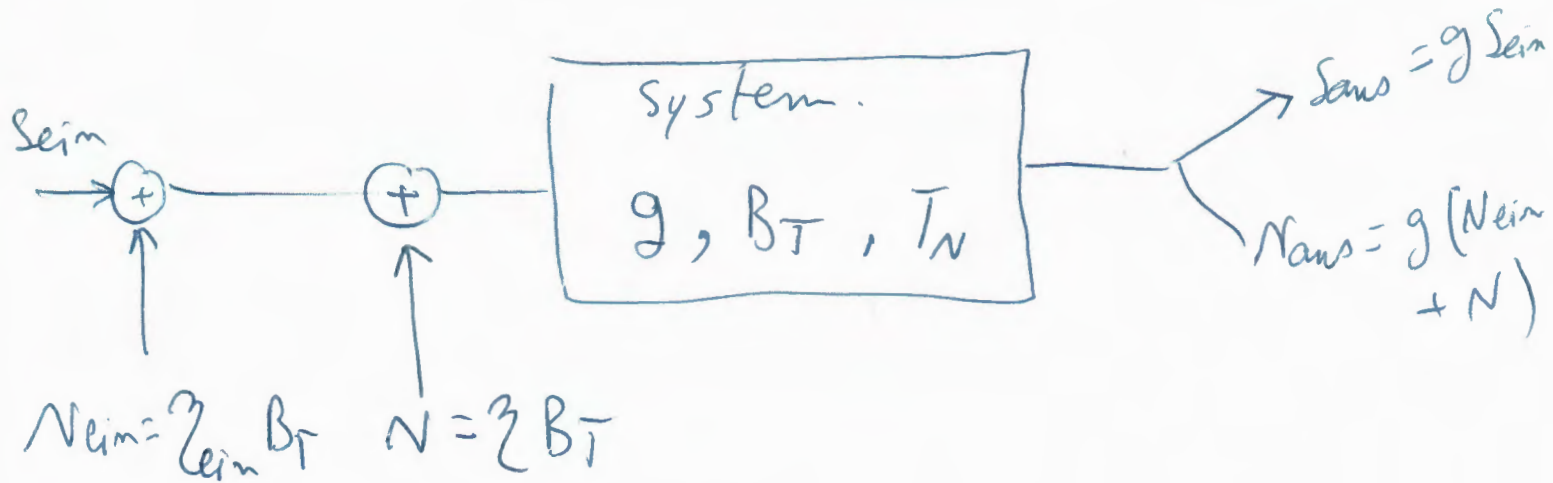 Sein
+
+
system.
g, B_T, T_N
Saus = g Sein
Naus = g (Nein
+ N)
Nein = η_ein B_T
N = η B_T